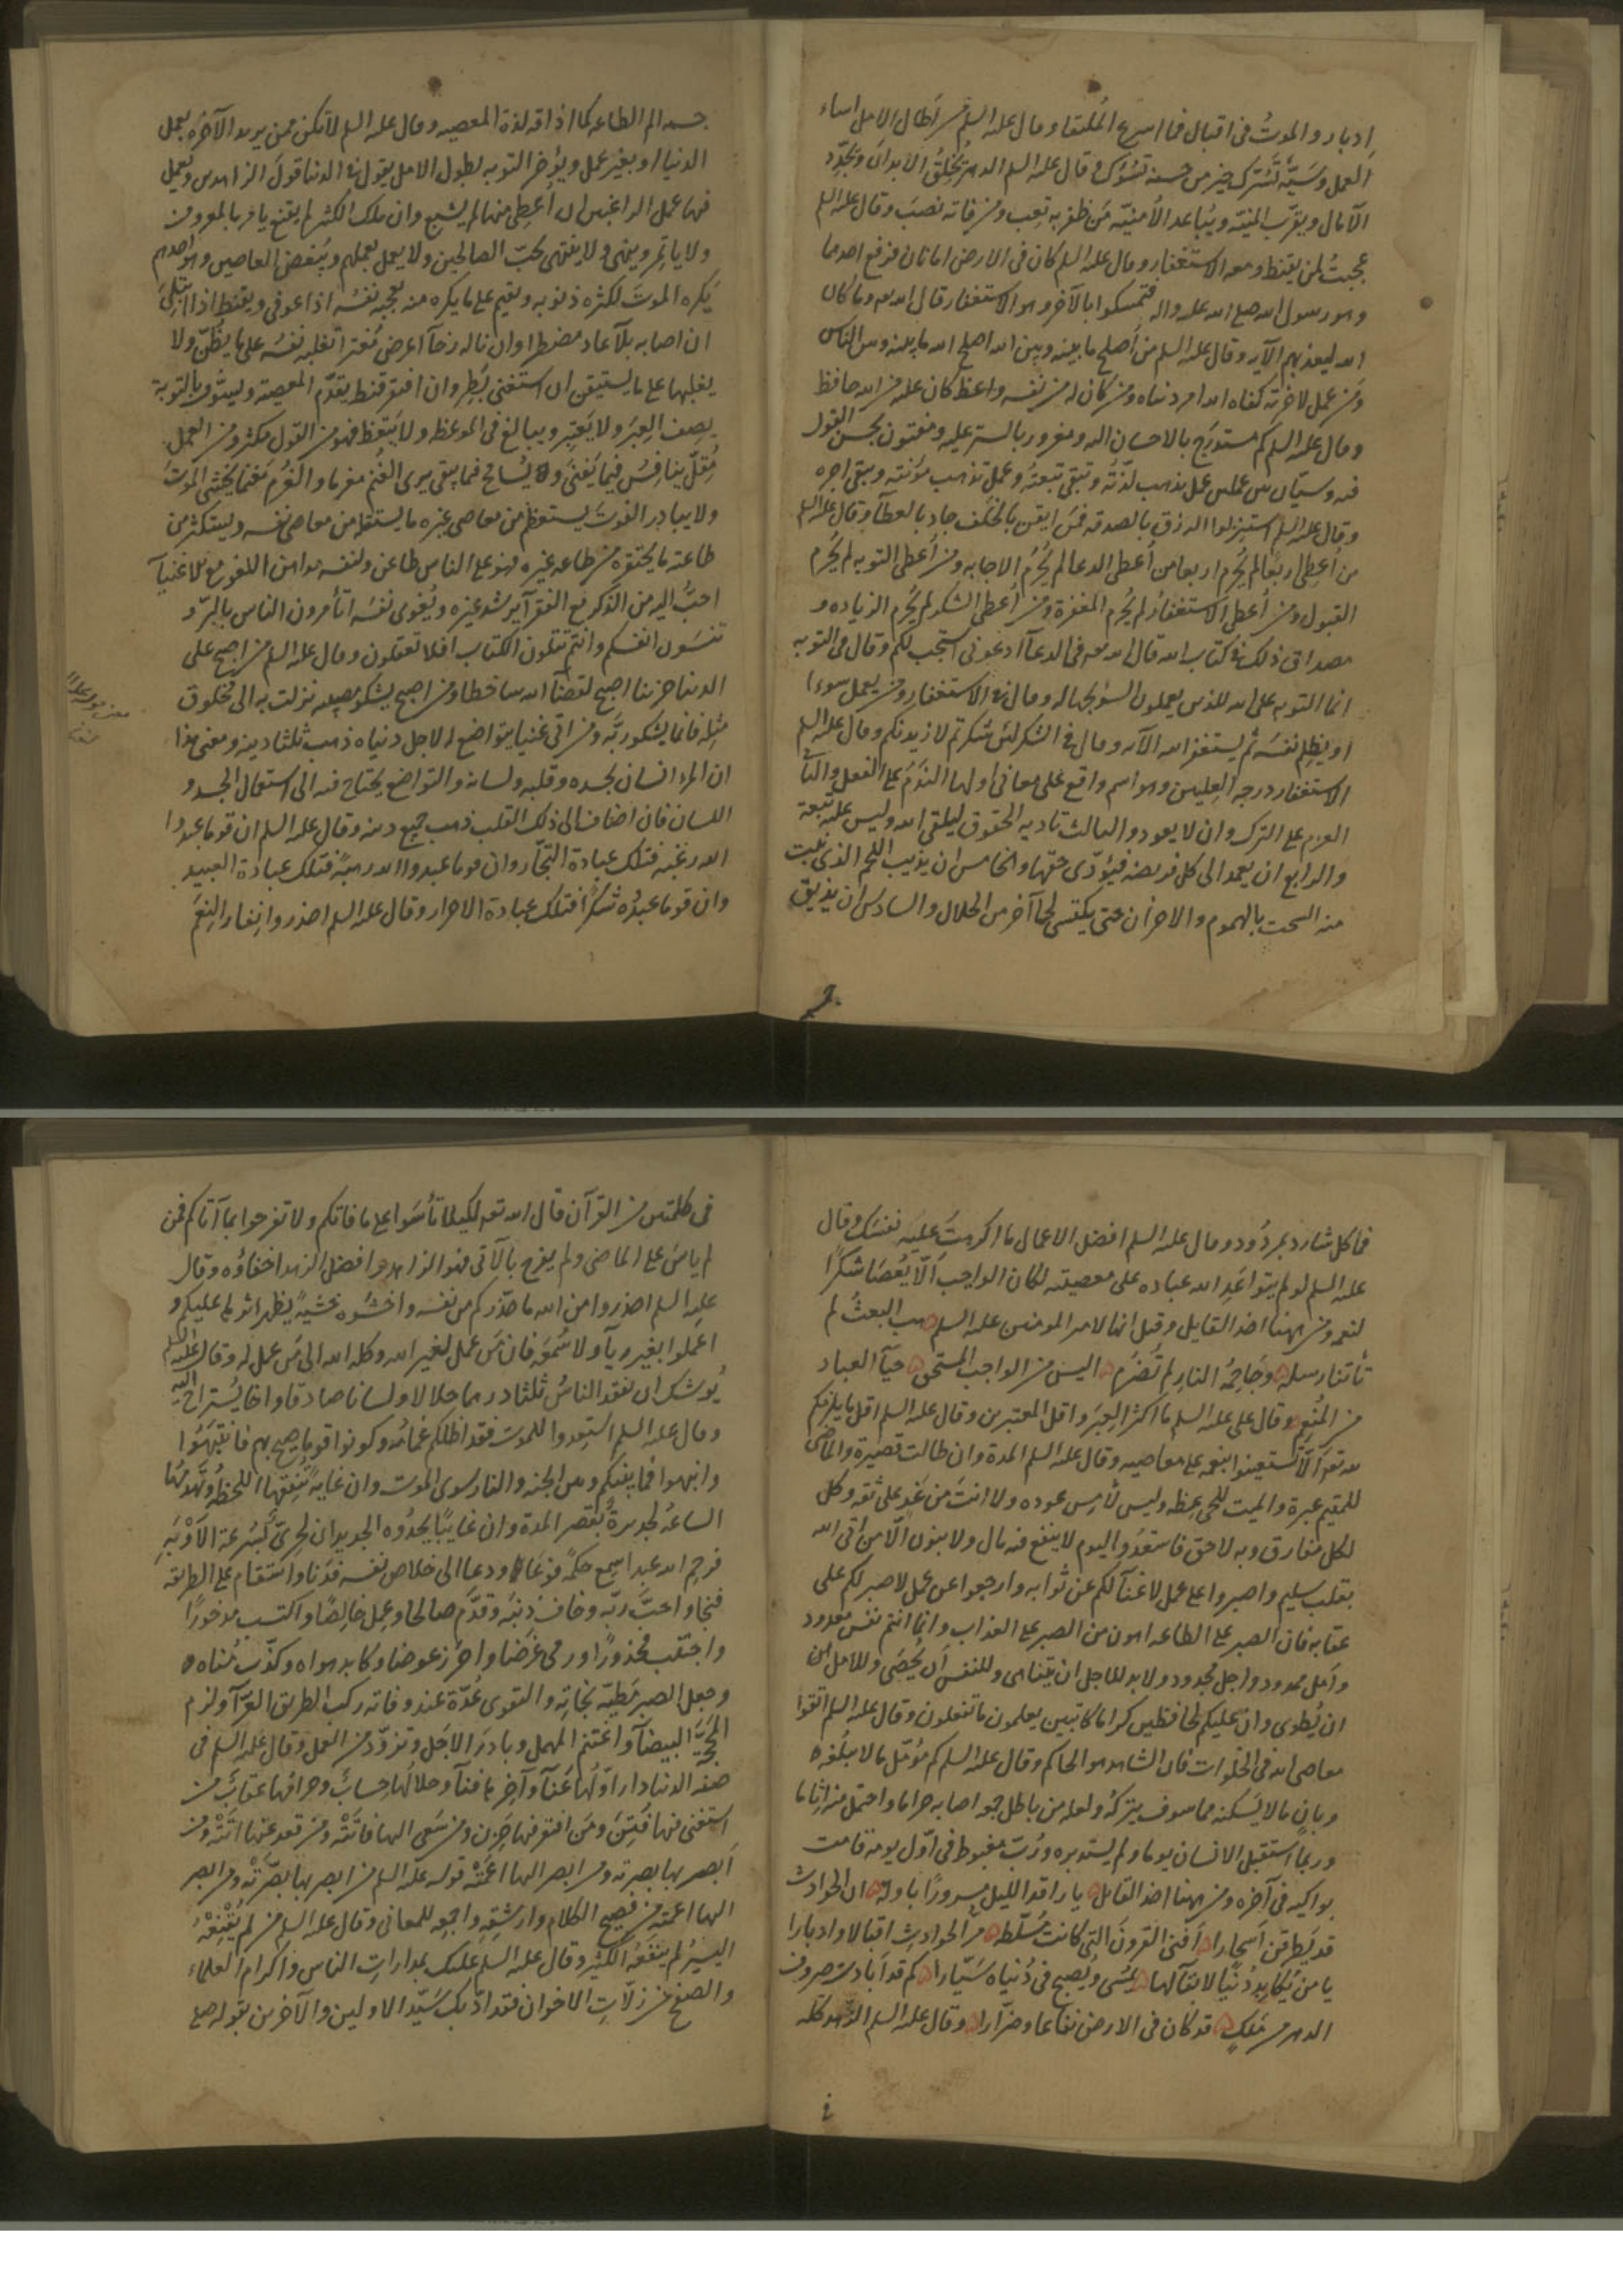 إدبار والموتُ فى اقبال فما اسرع المُلتقا وقال عليه السلم من اَطال الامل اساء
اَلعمل وسَيّئة تَسُرّك خير من حسنه تسُوك وقال عليه السلم الدهر يُخلِقُ الابدان ويُجدِّد
الآمال ويقرّب المنيّه ويُباعد الأمنيّه مَن ظفر به تعِب ومن فاته نصَب وقال عليه السلم
عجبتُ لمن يقنط ومعه الاستغفار وقال عليه السلم كان فى الارض امانان فرفع احدهما
وهو رسول الله صلى الله عليه واله فتمسكوا بالآخر وهو الاستغفار قال الله تعه وما كان
الله ليعذبهم الآيه وقال عليه السلم من أصلح مابينه وبين الله اصلح الله مابينه وبين الناس
ومن عمل لاخرته كفاه الله امر دنياه ومن كان له من نفسه واعظ كان عليه من الله حافظ
وقال عليه السلم كم مستدرَج بالاحسان اليه ومغرور بالستر عليه ومفتون بحسن القول
فيه وسيّان بين عملين عمل يذهب لذّتُه وتبقى تبعتُه وعمل تذهب مؤنته ويبقى اجره
وقال عليه السلم استنزلوا الرزق بالصدقه فمَن ايقن بالخلَف جاد بالعطآء وقال عليه السلم
من أعطِى اربعًا لم يُحرم اربعا من أعطى الدعا لم يُحرُم الاجابه ومن أعطى التوبه لم يُحرم
القبول ومن أعطى الاستغفار لم يُحرم المغفرة ومن أعطى الشكر لم يُحرم الزياده و
مصداق ذلك فى كتاب الله قال الله تعه فى الدعاآ ادعونى استجب لكم وقال فى التوبه
انما التوبه على الله للذين يعملون السوء بجهاله وقال فى الاستغفار ومن يعمل سوءا
او يظلِم نفسَه ثم يستغفر الله الآيه وقال فى الشكر لئن شكرتم لازيدنكم وقال عليه السلم
الاستغفار درجه العِليين وهو اسم واقع على معانى أولها النَدمُ على الفعل والثانى
العزم على الترك وان لا يعود والثالث تاديه الحقوق ليلقى الله وليس عليه تبعة
والرابع ان يعمد الى كل فريضه فيُؤدّى حقّها والخامس ان يذيب اللحم الذى نبت
منه السحت بالهموم والاحزان حتى يكتسى لحماً آخر من الحلال والسادس ان يذيق
جسمه الم الطاعه كما اذاقه لذة المعصيه وقال عليه السلم لا تكن ممن يريد الآخرة بعمل
الدنيا او بغير عمل ويؤخر التوبه لطول الامل يقول فى الدنيا قولَ الزاهدين ويَعمل
فيها عمل الراغبين ان أعطى منها لم يشبع وان ملك الكثير لم يقنع يامر بالمعروف
ولا ياتمِر وينهى ولا ينتهى يُحبّ الصالحين ولا يعمل بعملهم ويُبغض العاصين وهو احدهم
يَكره الموتَ لكثره ذنوبه ويقيم على ما يكره منه يعجبه نفسُه اذا عوفى ويقنط اذا ابتُلِىَ
ان اصابه بلآ عاد مضطرا وان ناله رخآ اعرض مُغترا تغلبه نفسُه على ما يظنّ ولا
يغلبها على ما يستيقن ان استغنى بَطِر وان افتقر قنط يقدّم المعصيه ويسوّف بالتوبة
يصف العِبرَ ولا يعتبِر ويبالغ فى الموعظه ولا يتعظ فهو من القول مكثر ومن العمل
مُقِلّ ينافِسُ فيما يَفنى ويُسامح فيما يبقى يرى الغُنم مغرما والغُرم مَغنما يخشى الموتَ
ولا يبادر الفوتَ يستعظِم من معاصى غيره ما يستقله من معاصى نفسه ويستكثر من
طاعته ما يحتقره من طاعه غيره فهو على الناس طاعن ولنفسه مداهن اللغو مع الاغنيآ
احبُّ اليه من الذكر مع الفقرآ يرشد غيره ويُغوى نفسَه اتأمرون الناس بالبِرّ و
تنسَون انفسكم وانتم تتلون الكتاب افلا تعقلون وقال عليه السلم من اصبح على
الدنيا حزينا اصبح لقضآ الله ساخطا ومن اصبح يشكو مصيبه نزلت به الى مخلوق
مِثله فانما يشكو ربَّه ومن اتى غنيا يتواضع له لاجل دنياه ذهب ثلثا دينه ومعنى هذا
ان المرء انسان بجسده وقلبه ولسانه والتواضع يحتاج فيه الى استعمال الجسد و
اللسان فان اضاف الى ذلك القلب ذهب جميع دينه وقال عليه السلم ان قوما عبدوا
الله رغبه فتلك عبادة التجّار وان قوما عبدوا الله رهبةً فتلك عبادة العبيد
وان قوما عبدُوه شكرًا فتلك عبادة الاحرار وقال عليه السلم احذروا نِفار النِعَم
فما كل شارد بمردُود وقال عليه السلم افضل الاعمال ما اكرهتَ عليَه نفسَك وقال
عليه السلم لو لم يتواعَدِ الله عباده على معصيته لكان الواجب اَلّا يُعصَا شكرًا
لنعمه ومن هيهنا اخذ القايل وقيل انها لامير المومنين عليه السلم هب البعثُ لم
تأتنا رسله وجَاحِمُهُ النارِ لم تُضرَم اليس من الواجب المستحق حيآ العباد
من المُنعِم وقال على عليه السلم ما اكثر العِبرَ واقل المعتبرين وقال عليه السلم اقل ما يلزمكم
لله تعه اَلّا تستعينوا بنعمه على معاصيه وقال عليه السلم المدة وان طالت قصيرة والماضى
للمقيم عبرة والميت للحى عِظه وليس لأمسِ عوده ولا انتَ من غدٍ على ثقه وكل
لكل مفارق وبه لاحق فاستعدُّوا ليوم لا ينفع فيه مال ولا بنون اَلّا من اتى الله
بقلب سليم واصبروا على عمل لا غنآ لكم عن ثوابه وارجعوا عن عمل لا صبر لكم على
عقابه فان الصبر على الطاعه اهون من الصبر على العذاب وانما انتم نفس معدود
وأمل ممدود واجل محدود ولا بد للاجل ان يتناهى وللنفس اَن يُحصَى وللامل
ان يُطوى وان عليكم لحافظين كراما كاتبين يعلمون ما تفعلون وقال عليه السلم اتقوا
معاصى الله فى الخلوات فان الشاهد هو الحاكم وقال عليه السلم كم مُؤمّل مالا يبلُغه
وبانٍ مالا يَسكنه مما سوف يتركُه ولعله من باطل جمعه اصابه حراما واحتمل منه اثاما
وربما استقبل الانسان يوما ولم يستدبره ورُبّ مغبوط فى اوّل يومه قامت
بواكيه فى آخره ومن هيهنا اخذ القايل يا راقد الليل مسرورًا باوله ان الحوادث
قد يَطرقن اَسحارا اَفنى القرونَ التى كانت مُسلّطه مرّ الحوادثِ اقبالا وادبارا
يا من يُكابِدُ دُنيًا لابقآ لها يُمسَى ويُصبح فى دُنياه سَيّارا كم قد اَبادت صروف
الدهر من مَلكٍ قد كان فى الارض نفاعا وضرّارا وقال عليه السلم الزهد كله
فى كلمتين من القرآن قال الله تعه لكيلا تأسَوا على ما فاتكم ولا تفرحوا بما آتاكم فمن
لم يأسَ على الماضى ولم يفرح بالآتى فهو الزاهد وافضل الزهد اخفاؤه وقال
عليه السلم احذروا من الله ما حذّركم من نفسه واخشَوه خشيةً يظهر اثرها عليكم و
اعملوا بغير ريآ ولا سُمعَه فان مَن عمل لغير الله وكله الله الى مَن عمل له وقال عليه السلم
يُوشك ان يفقد الناسُ ثلثا درهما حلالا ولسانا صادقا واخا يُستراح اليه
وقال عليه السلم استعِدوا للموت فقد اظلكم غمامُه وكونوا قوما صيح بهم فانتبَهَوا
وانتهوا فما بينكم وبين الجنه والنار سوى الموت وان غايةً تنقصُها اللحظهُ وتهدمُها
الساعهُ لجديرةٌ بقصر المدة وان غايبًا يحدُوه الجديدان لحرىّ بسُرعة الأَوْبَةِ
فرحِم الله عبدا سمع حكمًا فوعَا ودعا الى خلاص نفسه فدَنا واستقام على الطريقه
فنجا واحبّ ربّه وخاف ذنبَه وقدَّم صالحا وعمِل خالِصًا واكتسب مذخورًا
واجتنب محذورًا ورمى غرَضًا واحرَز عوضا وكابد هواه وكذّب مُناه
وجعل الصبر مَطيّة نجاتِه والتقوى عُدّة عند وفاته ركب الطريق الغرّآ ولزم
المحجَّه البيضآ واغتنم المهل وبادرَ الاجَل وتزوّد من العمل وقال عليه السلم فى
صفه الدنيا دار اوّلها عَنآ وآخرها فنآ وحلالُها حِسابٌ وحرامُها عِقابٌ من
استغنى فيها فُتِنَ ومَن افتقر فيها حَزِن ومن سَعى اليها فاتَتْه ومن قعد عنها اتَتْه ومن
اَبصر بها بصرته ومن ابصر اليها اعمَتْه قوله عليه السلم من ابصر بها بصَّرتْه ومن ابصر
اليها اعمته من فصيح الكلام وارشقِهِ واجمِعه للمعانى وقال عليه السلم من لم يُقْنِعْهُ
اليسيرُ لم ينفَعْه الكثير وقال عليه السلم عليك بمداراتِ الناس واكرام العُلماء
والصفح عن زلّاتِ الاخوان فقد ادّبك سَيّد الاولين والآخرين بقوله صلى